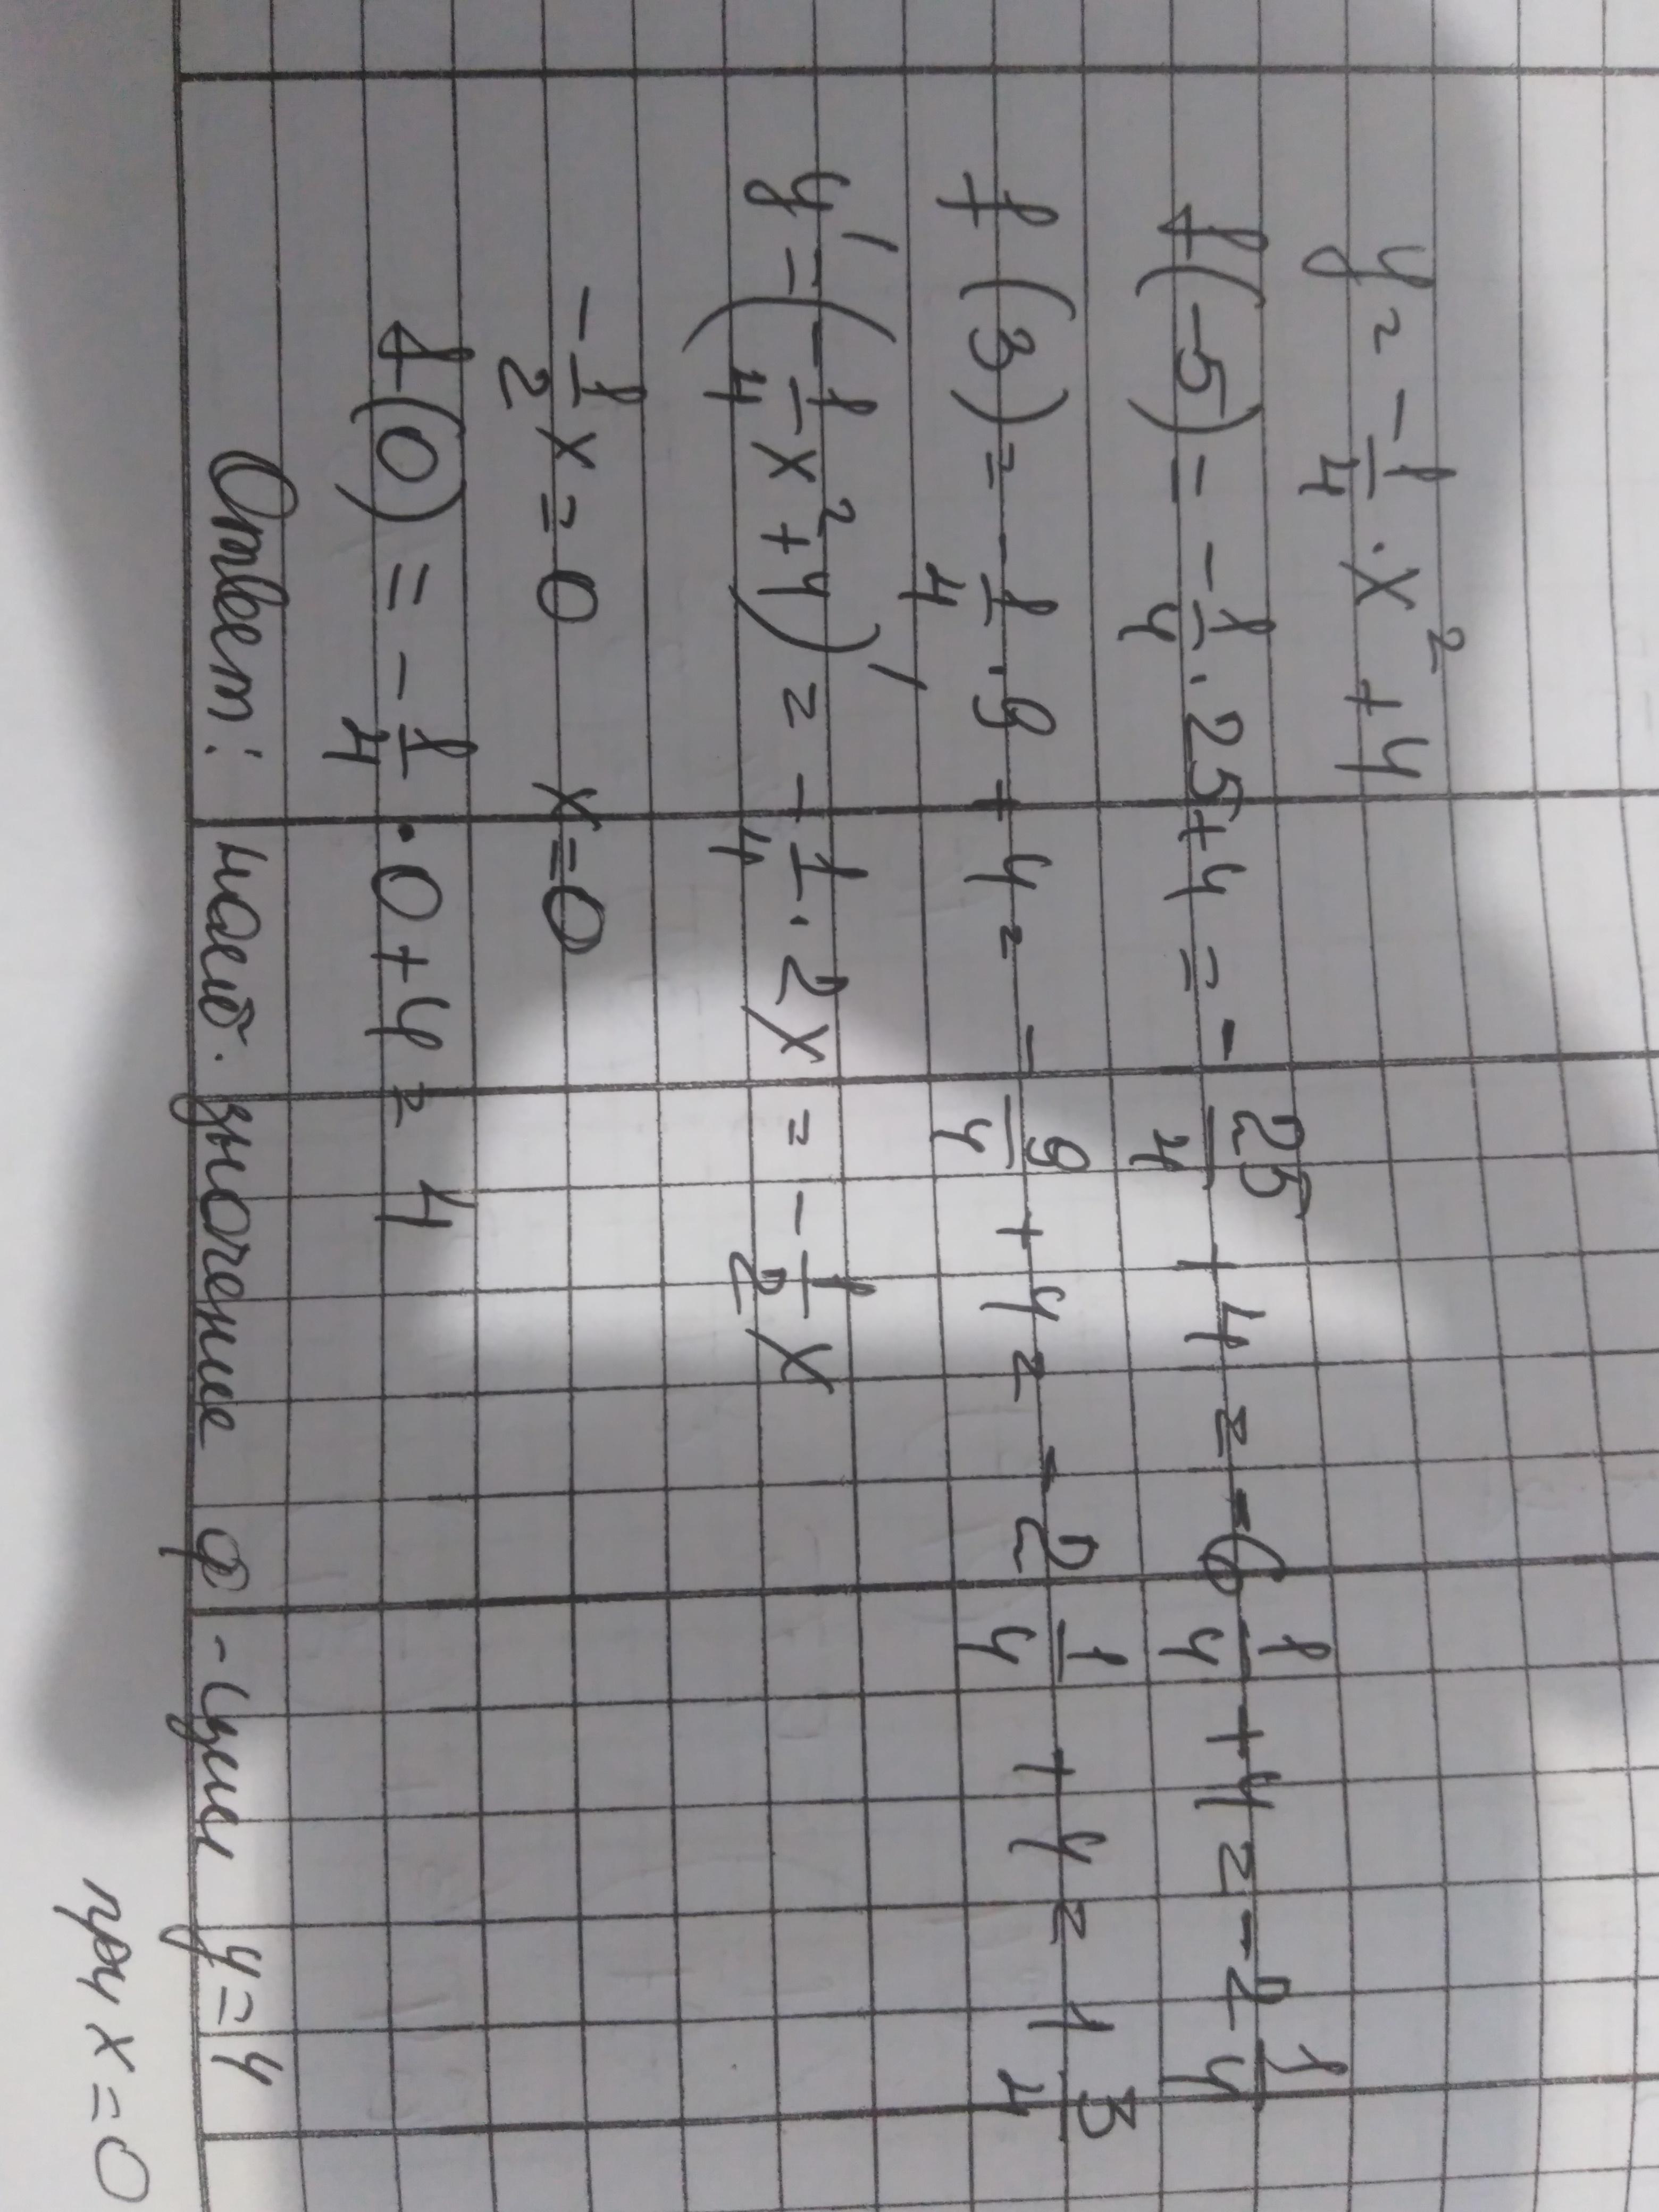 y = -1/4 · x² + 4
f(-5) = -1/4 · 25 + 4 = -25/4 + 4 = -6 1/4 + 4 = -2 1/4
f(3) = -1/4 · 9 + 4 = -9/4 + 4 = -2 1/4 + 4 = 1 3/4
y' = (-1/4 x² + 4)' = -1/4 · 2x = -1/2 x
-1/2 x = 0 x = 0
f(0) = -1/4 · 0 + 4 = 4
Ответ: наиб. значение ф-ции y = 4
при x = 0